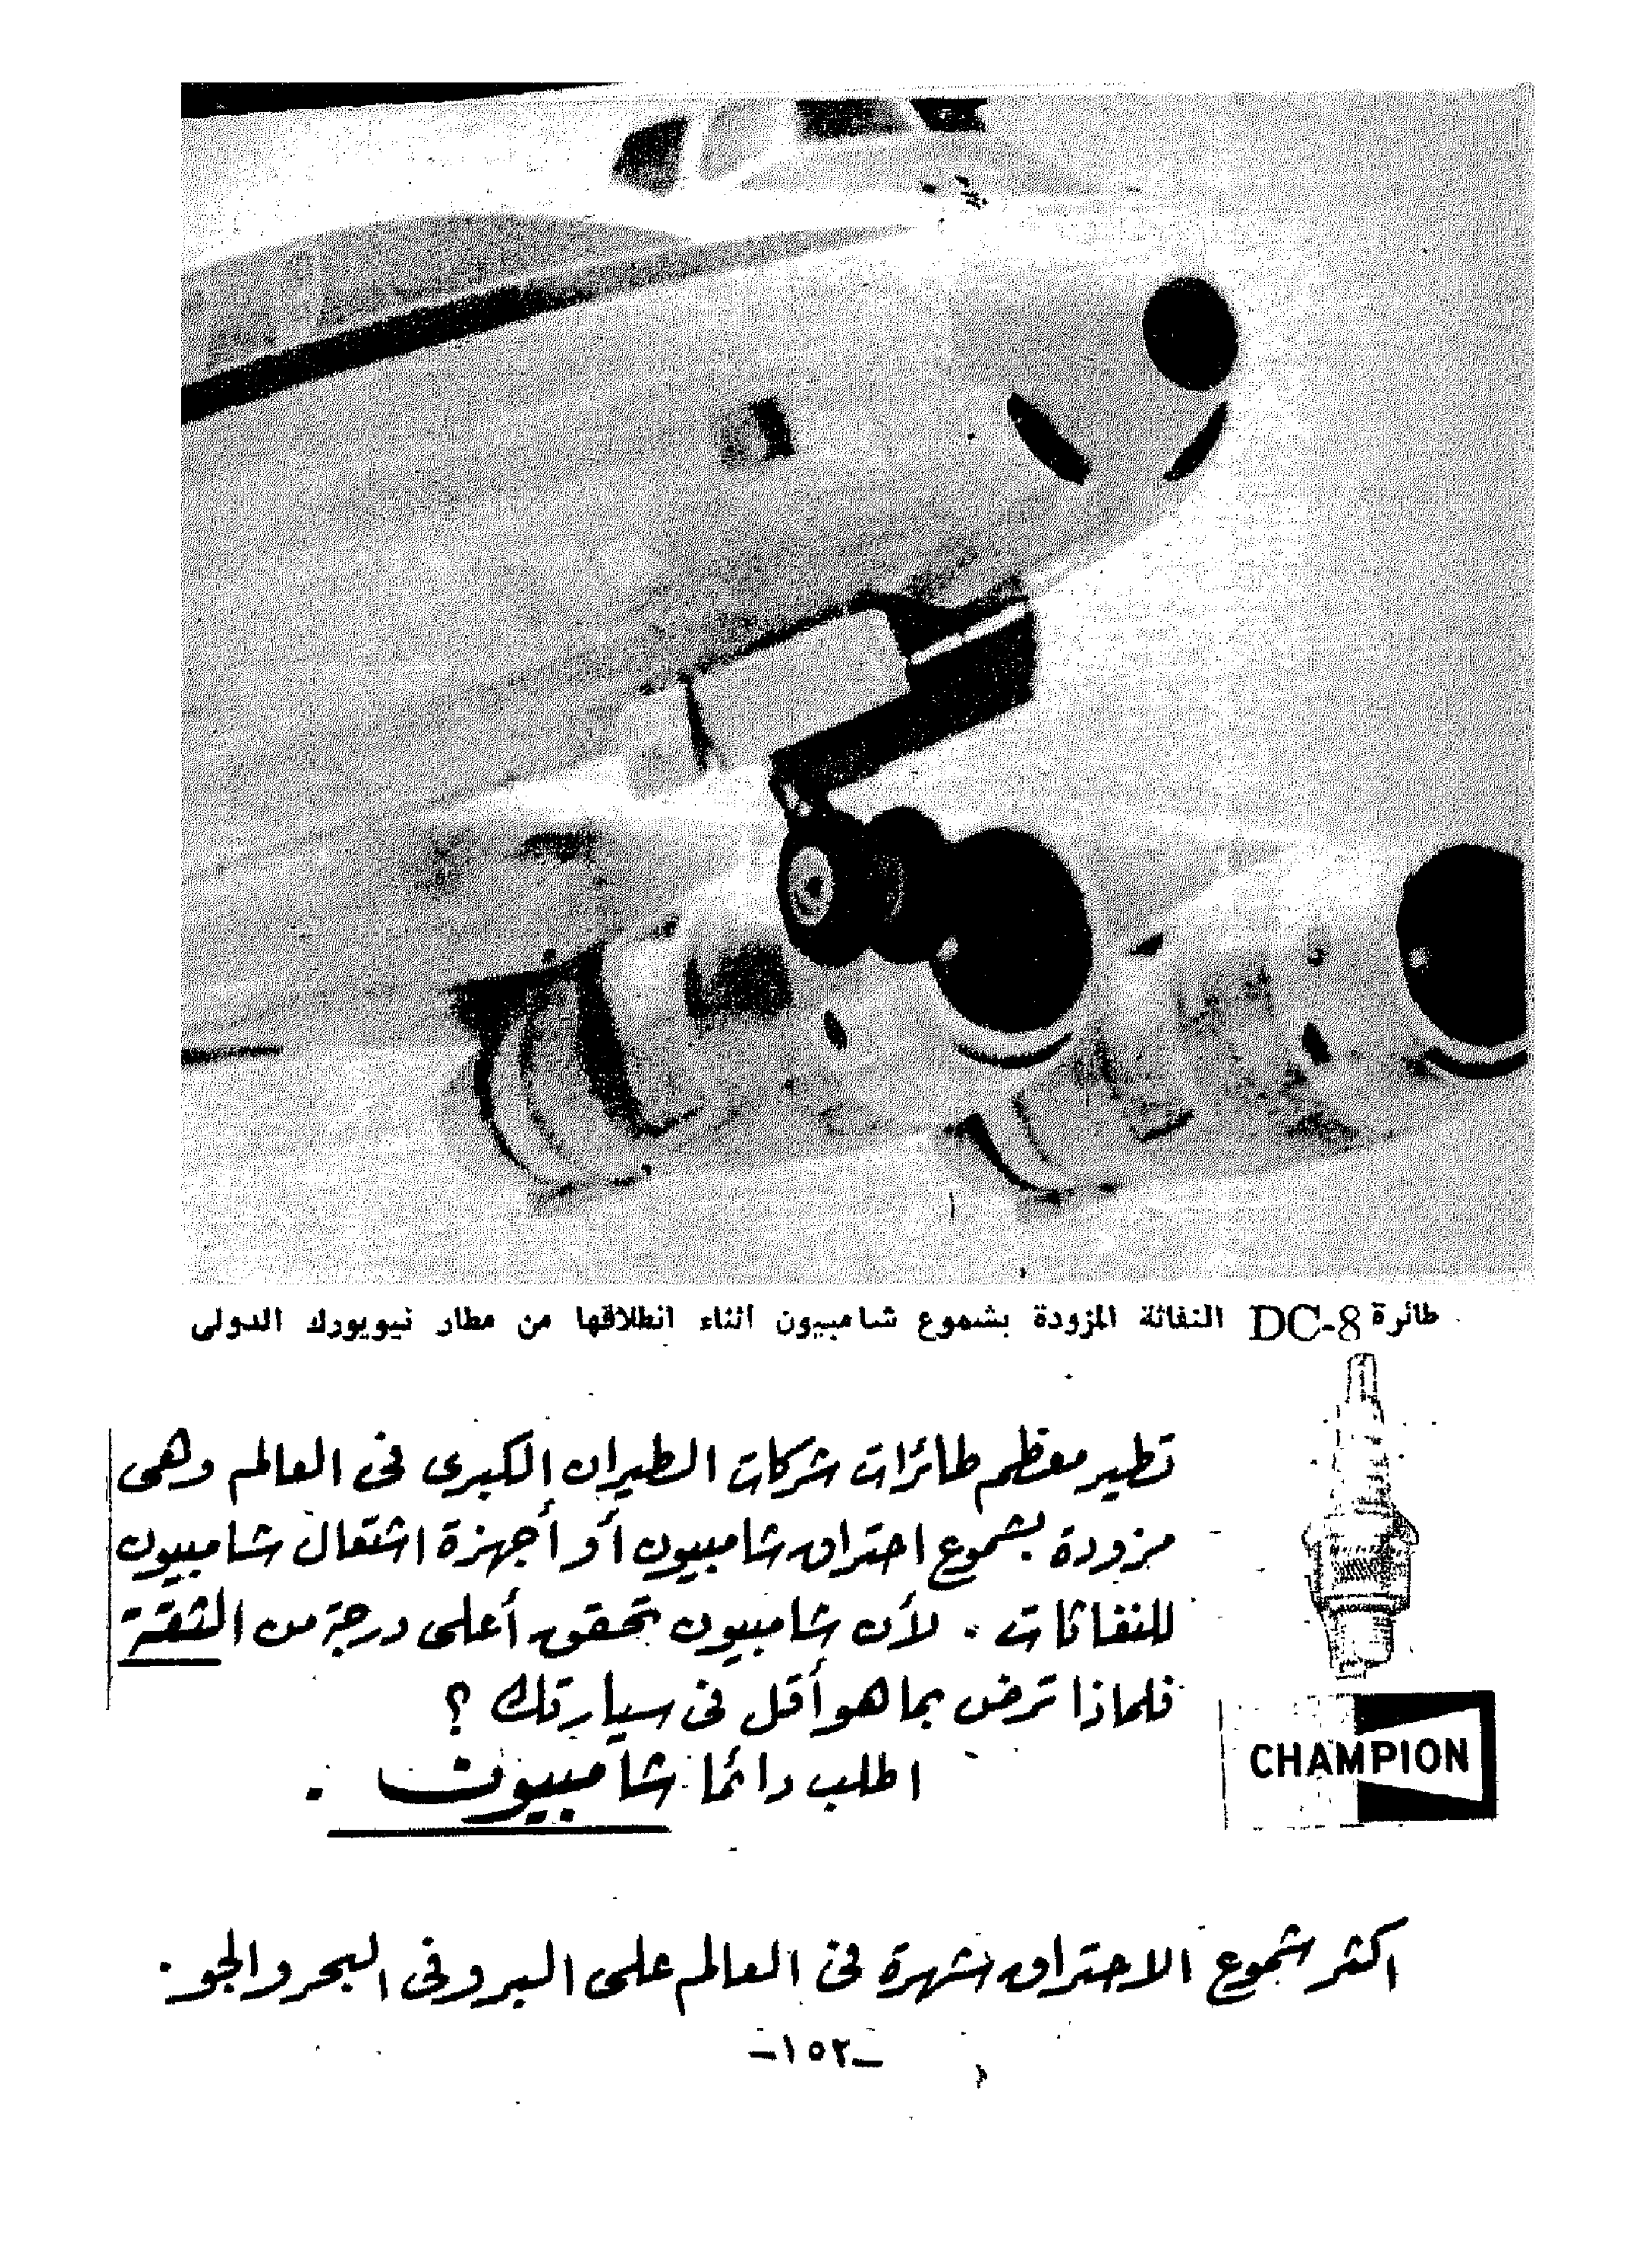 طائرة DC-8 النفاثة المزودة بشموع شامبيون اثناء انطلاقها من مطار نيويورك الدولى
تطير معظم طائرات شركات الطيران الكبرى فى العالم وهى
مزودة بشموع احتراق شامبيون أو أجهزة اشتعال شامبيون
للنفاثات . لأن شامبيون تحقق أعلى درجة من الثقة
فلماذا ترض بما هو أقل فى سيارتك ؟
اطلب دائما شامبيون .
CHAMPION
اكثر شموع الاحتراق شهرة فى العالم على البر وفى البحر والجو .
-١٥٢-